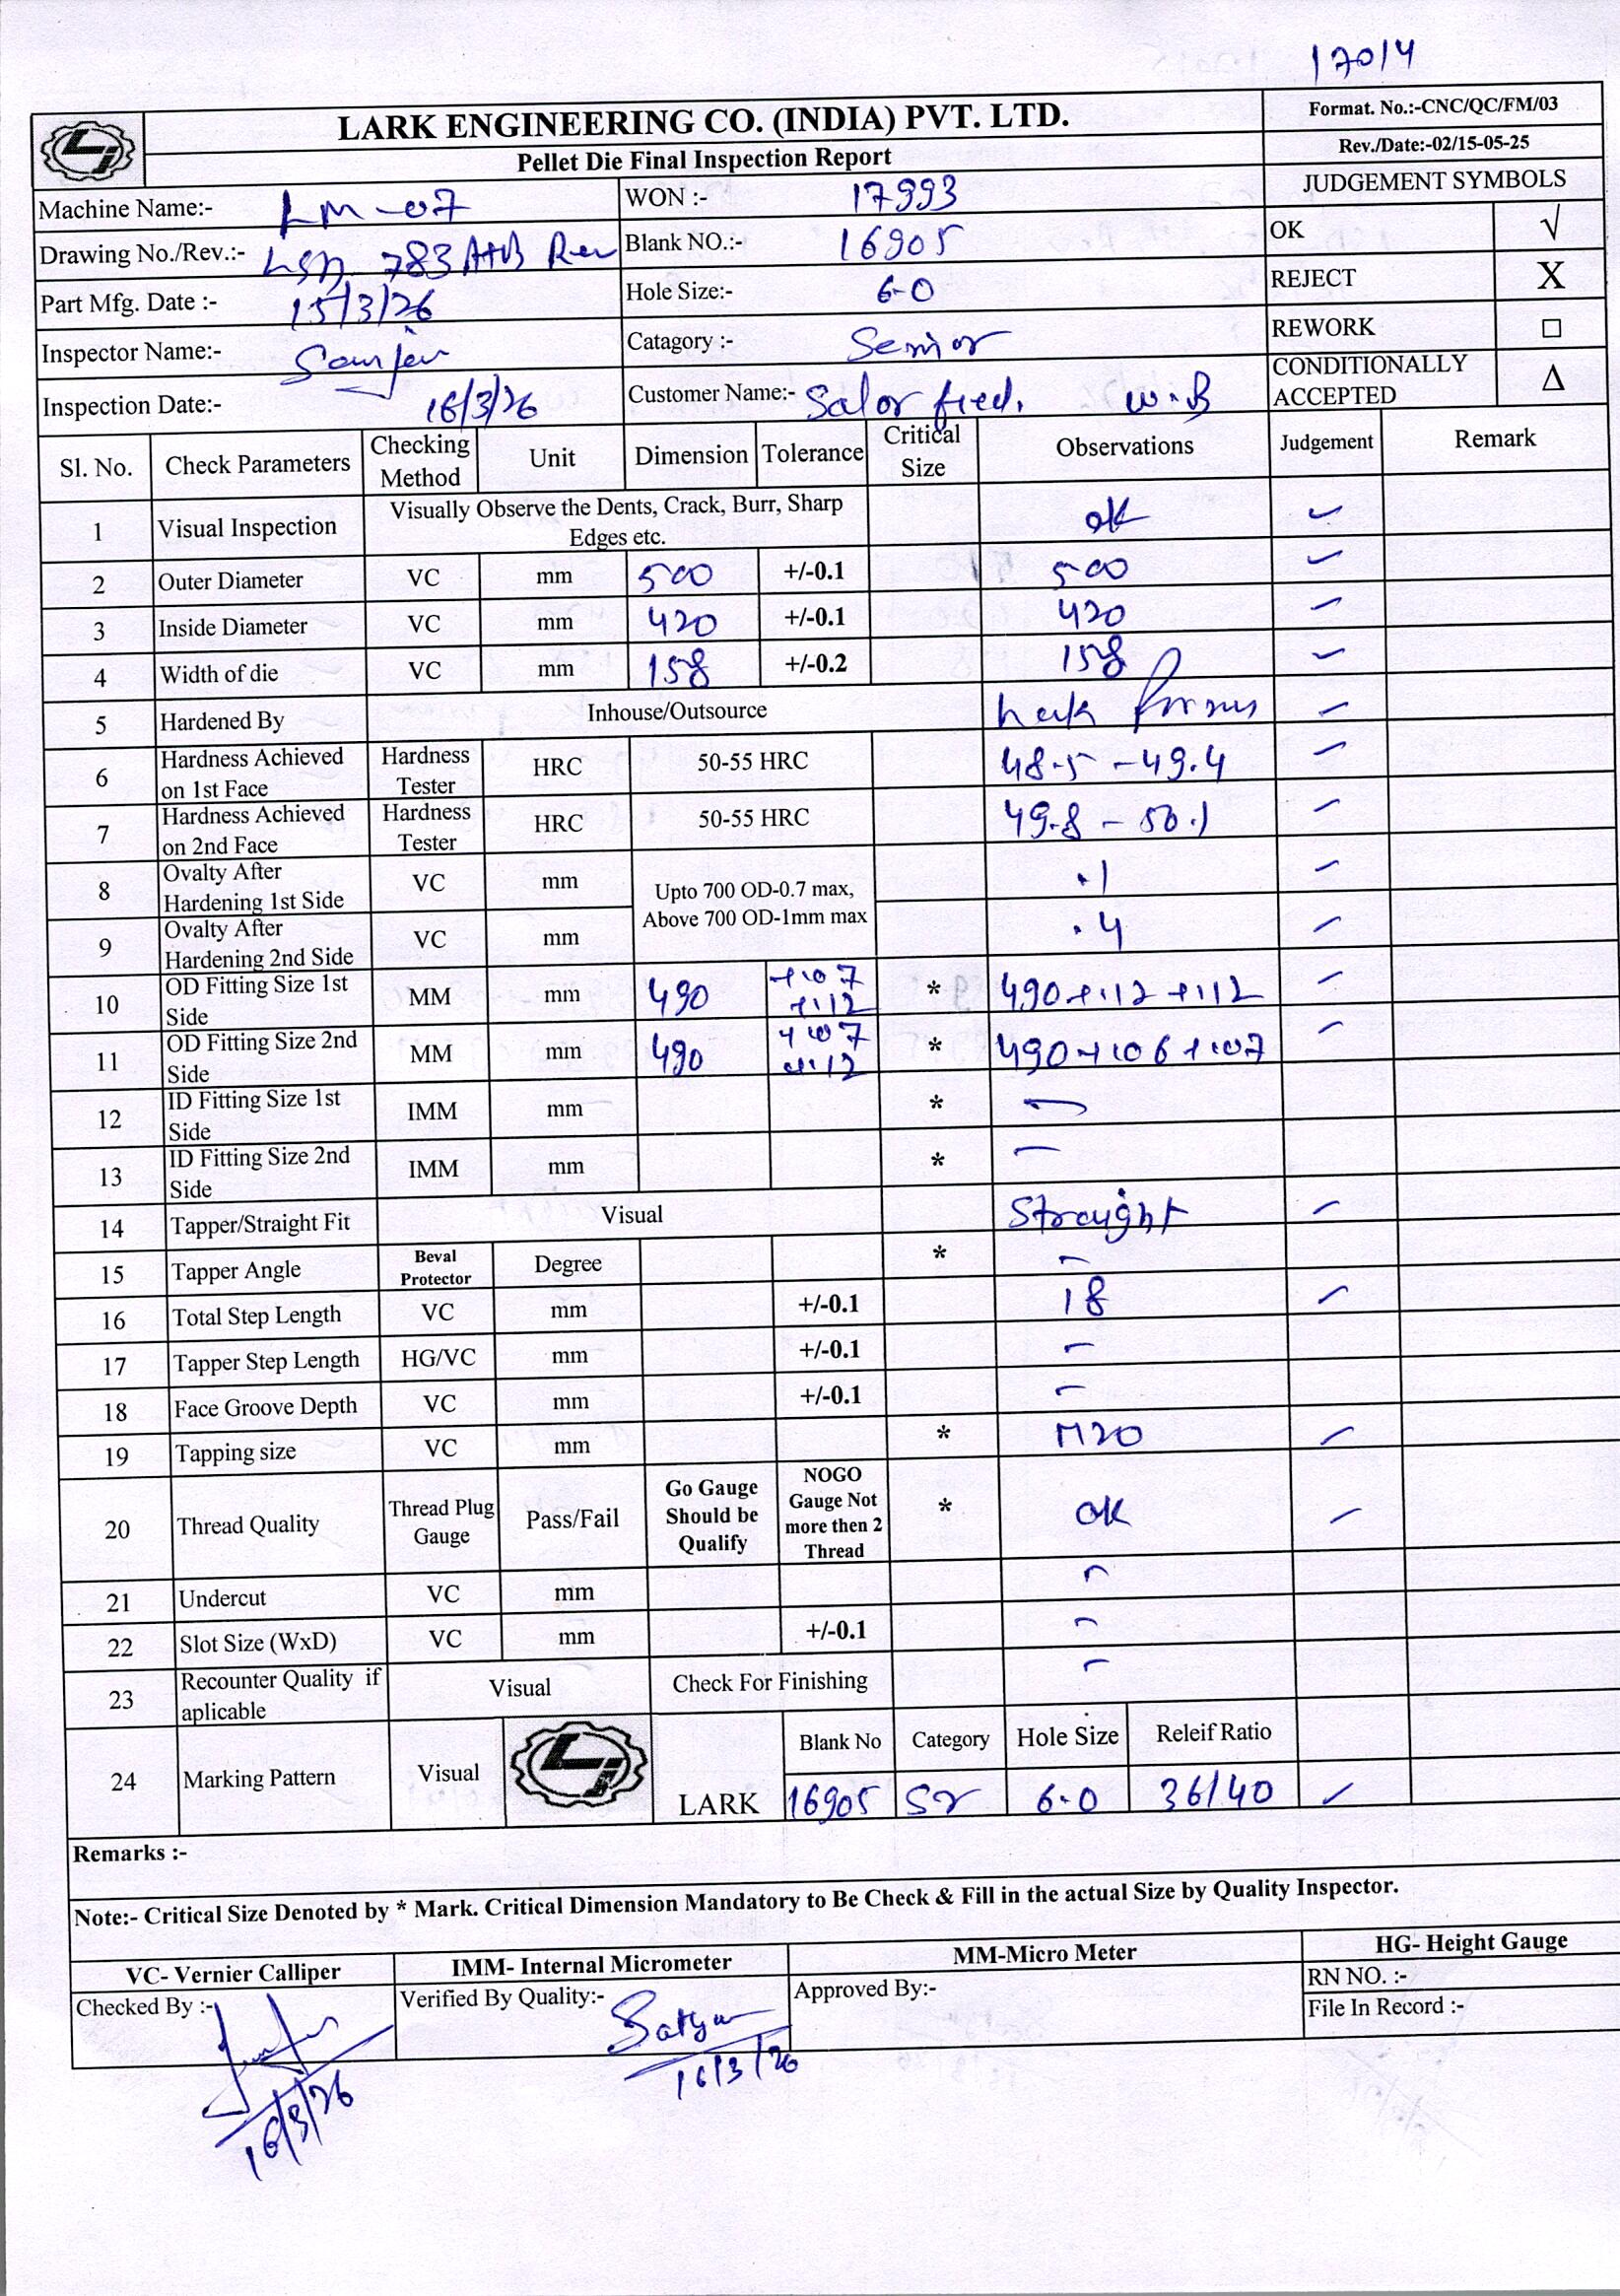 17014
LARK ENGINEERING CO. (INDIA) PVT. LTD.
Format. No.:-CNC/QC/FM/03
Pellet Die Final Inspection Report
Rev./Date:-02/15-05-25
Machine Name:- LM-07 WON :- 17993 JUDGEMENT SYMBOLS
Drawing No./Rev.:- 783 A+B Rev Blank NO.:- 16905 OK √
Part Mfg. Date :- 15/3/26 Hole Size:- 6.0 REJECT X
Inspector Name:- Catagory :- Senior REWORK □
Inspection Date:- 16/3/26 Customer Name:- Salor feed. W.B CONDITIONALLY ACCEPTED Δ
Sl. No. Check Parameters Checking Method Unit Dimension Tolerance Critical Size Observations Judgement Remark
1 Visual Inspection Visually Observe the Dents, Crack, Burr, Sharp Edges etc. ok ✓
2 Outer Diameter VC mm 500 +/-0.1 500 ✓
3 Inside Diameter VC mm 420 +/-0.1 420 ✓
4 Width of die VC mm 158 +/-0.2 158 ✓
5 Hardened By Inhouse/Outsource Lark ✓
6 Hardness Achieved on 1st Face Hardness Tester HRC 50-55 HRC 48.5 - 49.4 ✓
7 Hardness Achieved on 2nd Face Hardness Tester HRC 50-55 HRC 49.8 - 50.1 ✓
8 Ovalty After Hardening 1st Side VC mm Upto 700 OD-0.7 max, Above 700 OD-1mm max .1 ✓
9 Ovalty After Hardening 2nd Side VC mm .4 ✓
10 OD Fitting Size 1st Side MM mm 490 +.07 +.12 * 490 +.12 +.12 ✓
11 OD Fitting Size 2nd Side MM mm 490 +.07 +.12 * 490 +.06 +.07 ✓
12 ID Fitting Size 1st Side IMM mm * -
13 ID Fitting Size 2nd Side IMM mm * -
14 Tapper/Straight Fit Visual Straight ✓
15 Tapper Angle Beval Protector Degree * -
16 Total Step Length VC mm +/-0.1 18 ✓
17 Tapper Step Length HG/VC mm +/-0.1 -
18 Face Groove Depth VC mm +/-0.1 -
19 Tapping size VC mm * M20 ✓
20 Thread Quality Thread Plug Gauge Pass/Fail Go Gauge Should be Qualify NOGO Gauge Not more then 2 Thread * OK ✓
21 Undercut VC mm -
22 Slot Size (WxD) VC mm +/-0.1 -
23 Recounter Quality if aplicable Visual Check For Finishing -
24 Marking Pattern Visual LARK Blank No Category Hole Size Releif Ratio
16905 Sr 6.0 36/40 ✓
Remarks :-
Note:- Critical Size Denoted by * Mark. Critical Dimension Mandatory to Be Check & Fill in the actual Size by Quality Inspector.
VC- Vernier Calliper IMM- Internal Micrometer MM-Micro Meter HG- Height Gauge
Checked By :- Verified By Quality:- Satyam Approved By:- RN NO. :-
File In Record :-
16/3/26 16/3/26